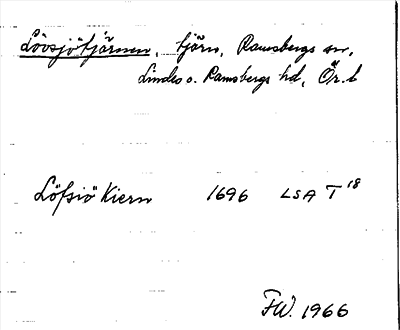 Lövsjötjärnen, tjärn, Ramsbergs sn,
Lindes o. Ramsbergs hd, Ör. l
Löfsiö Kiern 1696 LSA T 18
FW. 1966